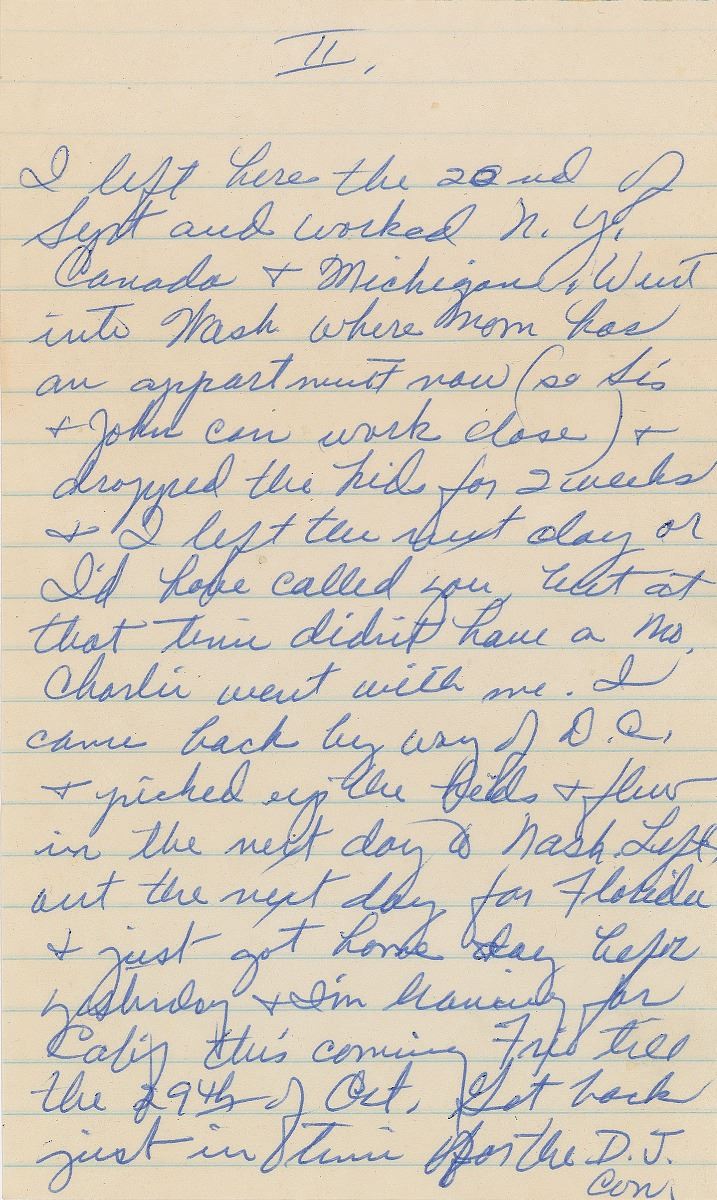 II.
I left here the 22nd of
Sept and worked N.Y.
Canada + Michigan. Went
into Wash where Mom has
an appartment now (so Sis
+ John can work close) +
dropped the kids for 2 weeks
+ I left the next day or
I'd have called you, but at
that time didn't have a No.
Charlie went with me. I
came back by way of D.C.
+ picked up the kids + flew
in the next day to Nash. Left
out the next day for Florida
+ just got home day before
yesterday + I'm leaving for
Calif this coming Fri till
the 29th of Oct. Get back
just in time for the D.J.
Con.